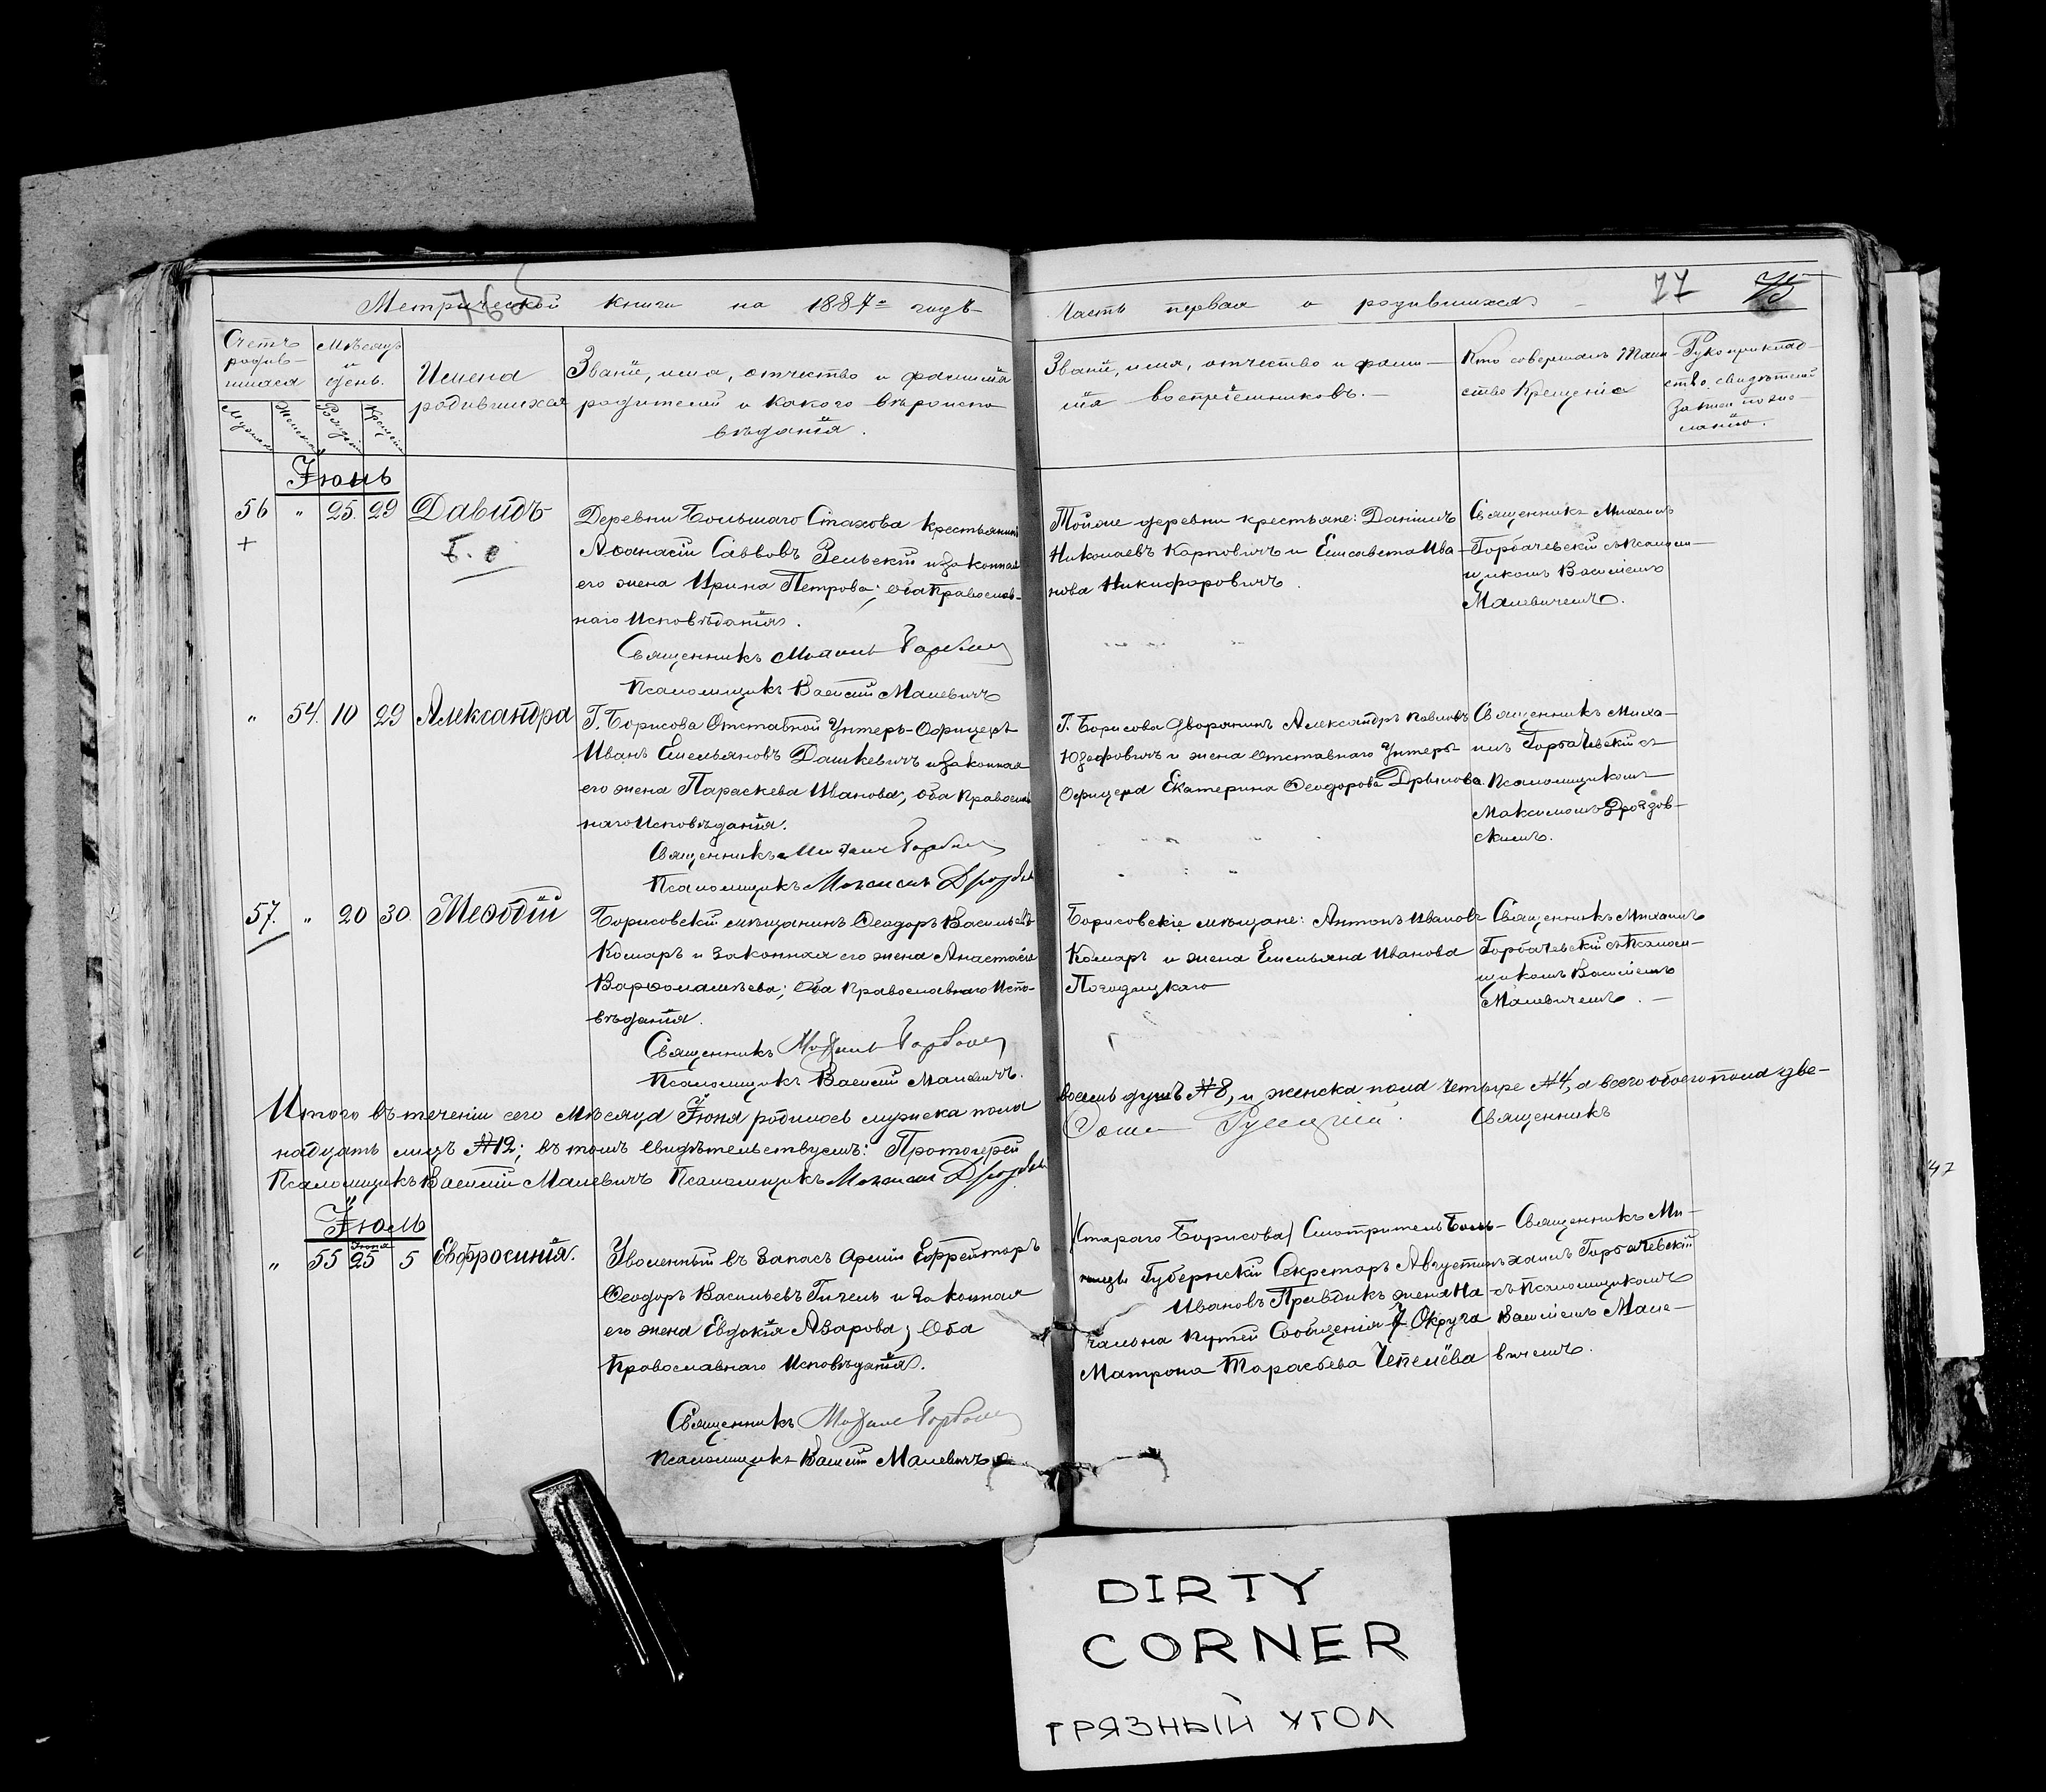 Метрической книги на 1887й годъ
Счетъ родив-шихся
Мужеска
Женска
Мѣсяцъ и день.
Рожденія
Крещенія
Имена родившихся
Званіе, имя, отчество и фамилія
родителей и какого вѣроиспо-
вѣданія.
Іюнь
56 " 25. 29 Давидъ
+
Деревни Большаго Стахова крестьянинъ
Аѳанасій Саввовъ Зельскій и законная
его жена Ирина Петрова; оба Православ-
наго Исповѣданія.
Священникъ Михаилъ
Псаломщикъ Василій Малевичъ
" 54. 10 29 Александра
Г. Борисова Отставной Унтеръ-Офицеръ
Иванъ Емельяновъ Дашкевичъ и законная
его жена Параскева Иванова; оба Православ-
наго Исповѣданія.
Священникъ Михаилъ
Псаломщикъ Максимъ
57. " 20 30. Меѳодій
Борисовскій мѣщанинъ Ѳеодоръ Васильевъ
Комаръ и законная его жена Анастасія
Варѳоломеева; Оба Православнаго Испо-
вѣданія.
Священникъ Михаилъ
Псаломщикъ Василій Малевичъ.
Итого въ теченіи сего мѣсяца Іюня родилось мужеска пола
надцать лицъ №12; въ томъ свидѣтельствуемъ: Протоіерей
Псаломщикъ Василій Малевичъ Псаломщикъ Максимъ
Іюль
" 55 Іюня 25 5 Евфросинія.
Уволенный въ запасъ Арміи Ефрейторъ
Ѳеодоръ Васильевъ Гичель и законная
его жена Евдокія Азарова; Оба
Православнаго Исповѣданія.
Священникъ Михаилъ
Псаломщикъ Василій Малевичъ
Часть первая о родившихся
77 75
Званіе, имя, отчество и фами-
лія воспріемниковъ.
Кто совершалъ Таин-
ство Крещенія
Рукоприклад-
ство свидѣтелей
записи по же-
ланію.
Тойже деревни крестьяне: Даніилъ
Николаевъ Карповичъ и Елисавета Ива-
нова Никифоровичъ.
Священникъ Михаилъ
Горбачевскій съ Псалом-
щикомъ Василіемъ
Малевичемъ.
Г. Борисова Дворянинъ Александръ Павловъ
Юзефовичъ и жена Отставнаго Унтеръ
Офицера Екатерина Ѳеодорова
Священникъ Миха-
илъ Горбачевскій съ
Псаломщикомъ
Максимомъ Дроздов-
скимъ.
Борисовскіе мѣщане: Антонъ Ивановъ
Комаръ и жена Емельяна Иванова
Священникъ Михаилъ
Горбачевскій съ Псалом-
щикомъ Василіемъ
Малевичемъ.
восемь душъ №8, и женска пола четыре №4, а всего обоего пола две-
Священникъ
/Стараго Борисова/ Смотритель Боль-
ницы Губернскій Секретарь Августинъ
Ивановъ Правдикъ жена На-
чальна Путей Сообщенія Округа
Матрона Тарасьева Чепелёва
Священникъ Ми-
хаилъ Горбачевскій
съ Псаломщикомъ
Василіемъ Мале-
вичемъ.
47
DIRTY
CORNER
ГРЯЗНЫЙ УГОЛ